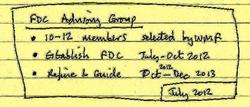 FDC Advisory Group
• 10-12 members selected by WMF
• Establish FDC July-Oct 2012
• Refine & Guide Oct 2012 - Dec 2013
July 2012